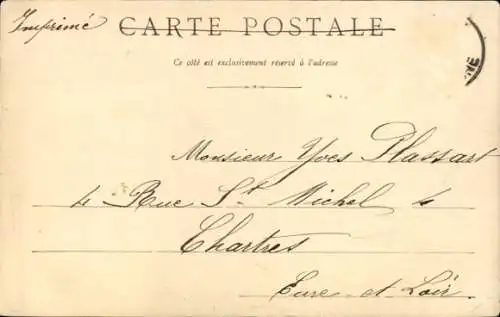 Imprimé
CARTE POSTALE
Ce côté est exclusivement réservé à l'adresse
Monsieur Yves Plassart
4 Rue St Michel 4
Chartres
Eure-et-Loir